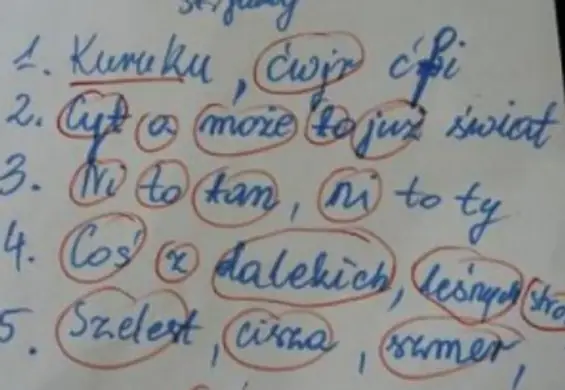 1. Kuruku, ćwir ćpi
2. Cyt a może to już świat
3. Ni to tan, ni to ty
4. Coś z dalekich, leśnych stro
5. Szelest, cisza, szmer,